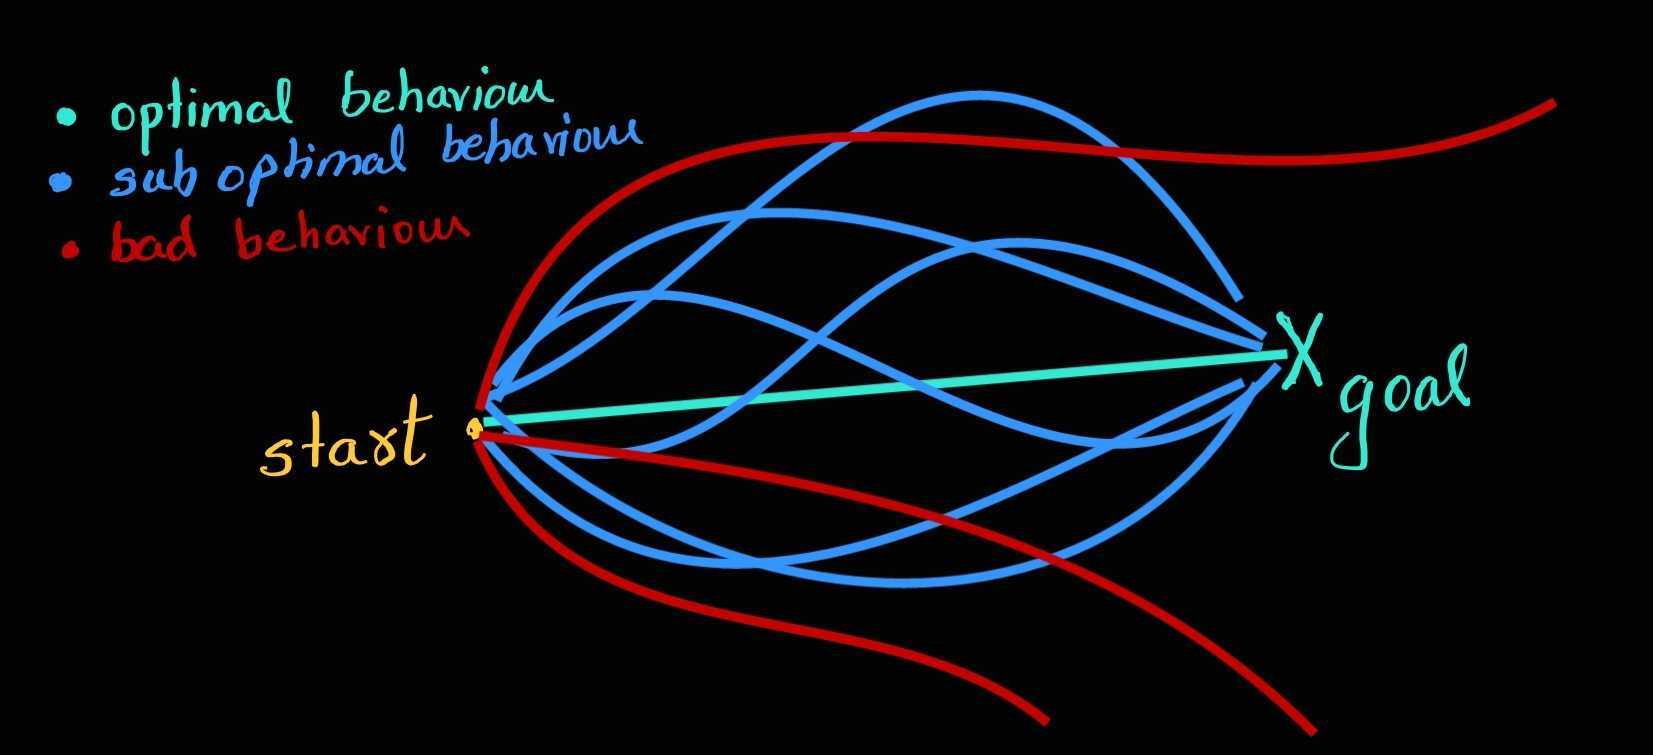 • optimal behaviour
• sub optimal behaviour
• bad behaviour
start
X goal